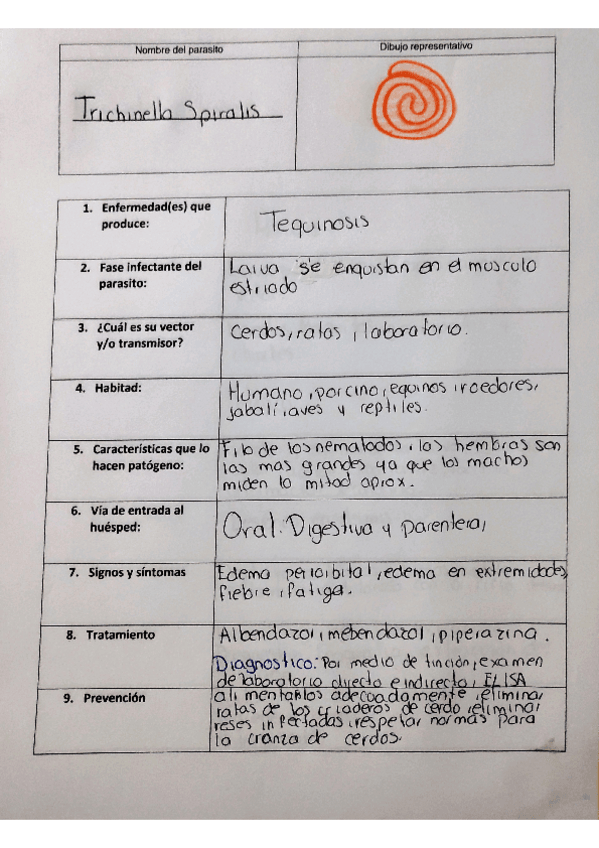 Nombre del parasito
Dibujo representativo
Trichinella Spiralis
1. Enfermedad(es) que
produce:
Tequinosis
2. Fase infectante del
parasito:
Larva se enquistan en el musculo
estriado
3. ¿Cuál es su vector
y/o transmisor?
Cerdos, ratas , laboratorio.
4. Habitad:
Humano, porcino, equinos, roedores,
jabalí, aves y reptiles.
5. Características que lo
hacen patógeno:
Filo de los nematodos, las hembras son
las mas grandes ya que los machos
miden la mitad aprox.
6. Vía de entrada al
huésped:
Oral. Digestiva y parenteral
7. Signos y síntomas
Edema periorbital, edema en extremidades,
fiebre, fatiga.
8. Tratamiento
Albendazol, mebendazol, piperazina.
Diagnostico: Por medio de tinción, examen
de laboratorio directo e indirecto, ELISA
9. Prevención
alimentarlos adecoadamente, eliminar
ratas de los criaderos de cerdo, eliminar
reses infectadas, respetar normas para
la crianza de cerdos.